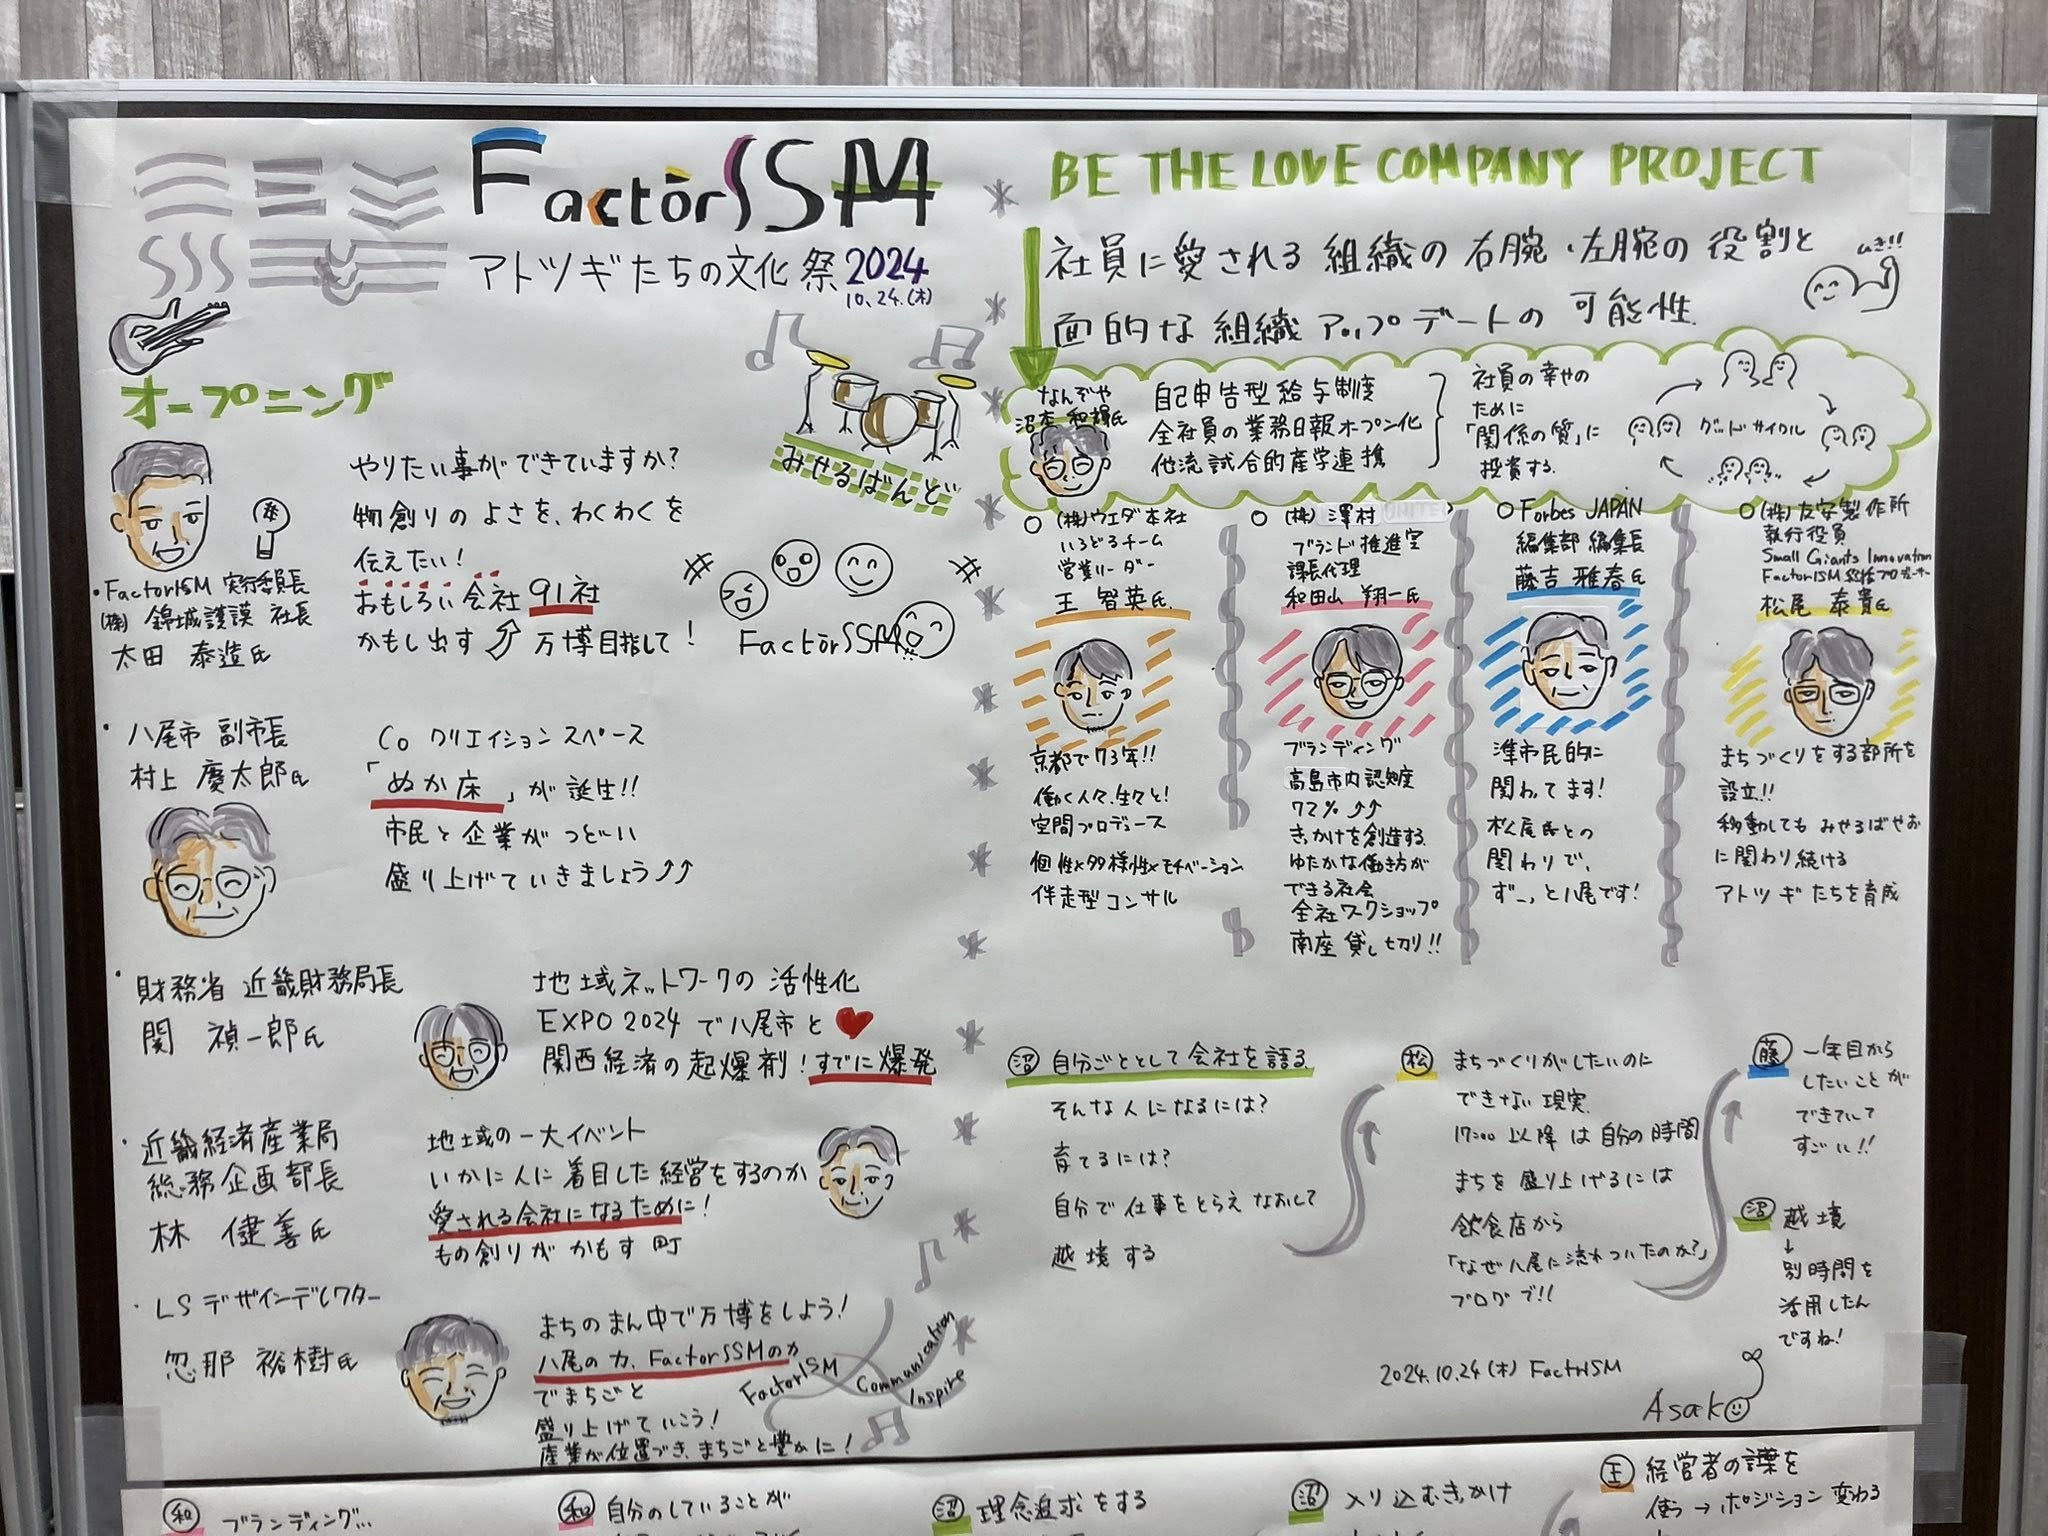 FactorISSM
アトツギたちの文化祭 2024
10.24.(木)
オープニング
みせるばんど
やりたい事ができていますか?
物創りのよさを、わくわくを
伝えたい!
おもしろい会社 91社
かもし出す 万博目指して!
FactorISSM
・FactorISM 実行委員長
(株) 錦城護謨 社長
太田 泰造氏
・八尾市 副市長
村上 慶太郎氏
Co クリエイションスペース
「ぬか床」が誕生!!
市民と企業がつどい
盛り上げていきましょう
・財務省 近畿財務局長
関 禎一郎氏
地域ネットワークの活性化
EXPO 2024 で八尾市と
関西経済の起爆剤!すでに爆発
・近畿経済産業局
総務企画部長
林 健善氏
地域の一大イベント
いかに人に着目した経営をするのか
愛される会社になるために!
もの創りがかもす町
・LSデザインディレクター
忽那 裕樹氏
まちのまん中で万博をしよう!
八尾の力、FactorISSMの力
でまちごと
盛り上げていこう!
産業が位置づき、まちごと豊かに!
FactorISM
Communication
Inspire
BE THE LOVE COMPANY PROJECT
社員に愛される組織の右腕・左腕の役割と
面的な組織アップデートの可能性
ムキ!!
なんぞや
沼本 和輝氏
自己申告型給与制度
全社員の業務日報オープン化
他流試合的産学連携
社員の幸せの
ために
「関係の質」に
投資する
グッドサイクル
○(株)ウエダ本社
いろどるチーム
営業リーダー
王 智英氏
京都で73年!!
働く人々、生々と!
空間プロデュース
個性×多様性×モチベーション
伴走型コンサル
○(株)澤村
ブランド推進室
課長代理
和田山 翔一氏
ブランディング
高島市内認知度
72%
きっかけを創造する
ゆたかな働き方が
できる社会
全社ワークショップ
南座貸し切り!!
○Forbes JAPAN
編集部 編集長
藤吉 雅春氏
準市民的に
関わってます!
松尾氏との
関わりで、
ずーっと八尾です!
○(株)友安製作所
執行役員
Small Giants Innovation
FactorISM 統括プロデューサー
松尾 泰貴氏
まちづくりをする部所を
設立!!
移動してもみせるばやお
に関わり続ける
アトツギたちを育成
沼 自分ごととして会社を語る
そんな人になるには?
育てるには?
自分で仕事をとらえなおして
越境する
松 まちづくりがしたいのに
できない現実
17:00 以降は自分の時間
まちを盛り上げるには
飲食店から
「なぜ八尾に流れついたのか?」
ブログで!!
藤 一年目から
したいことが
できていて
すごい!!
沼 越境
↓
別時間を
活用したん
ですね!
2024.10.24(木) FactorISM
Asako
和 ブランディング...
和 自分のしていることが
沼 理念追求をする
沼 入り込むきっかけ
王 経営者の言葉を
使う→ポジション変わる